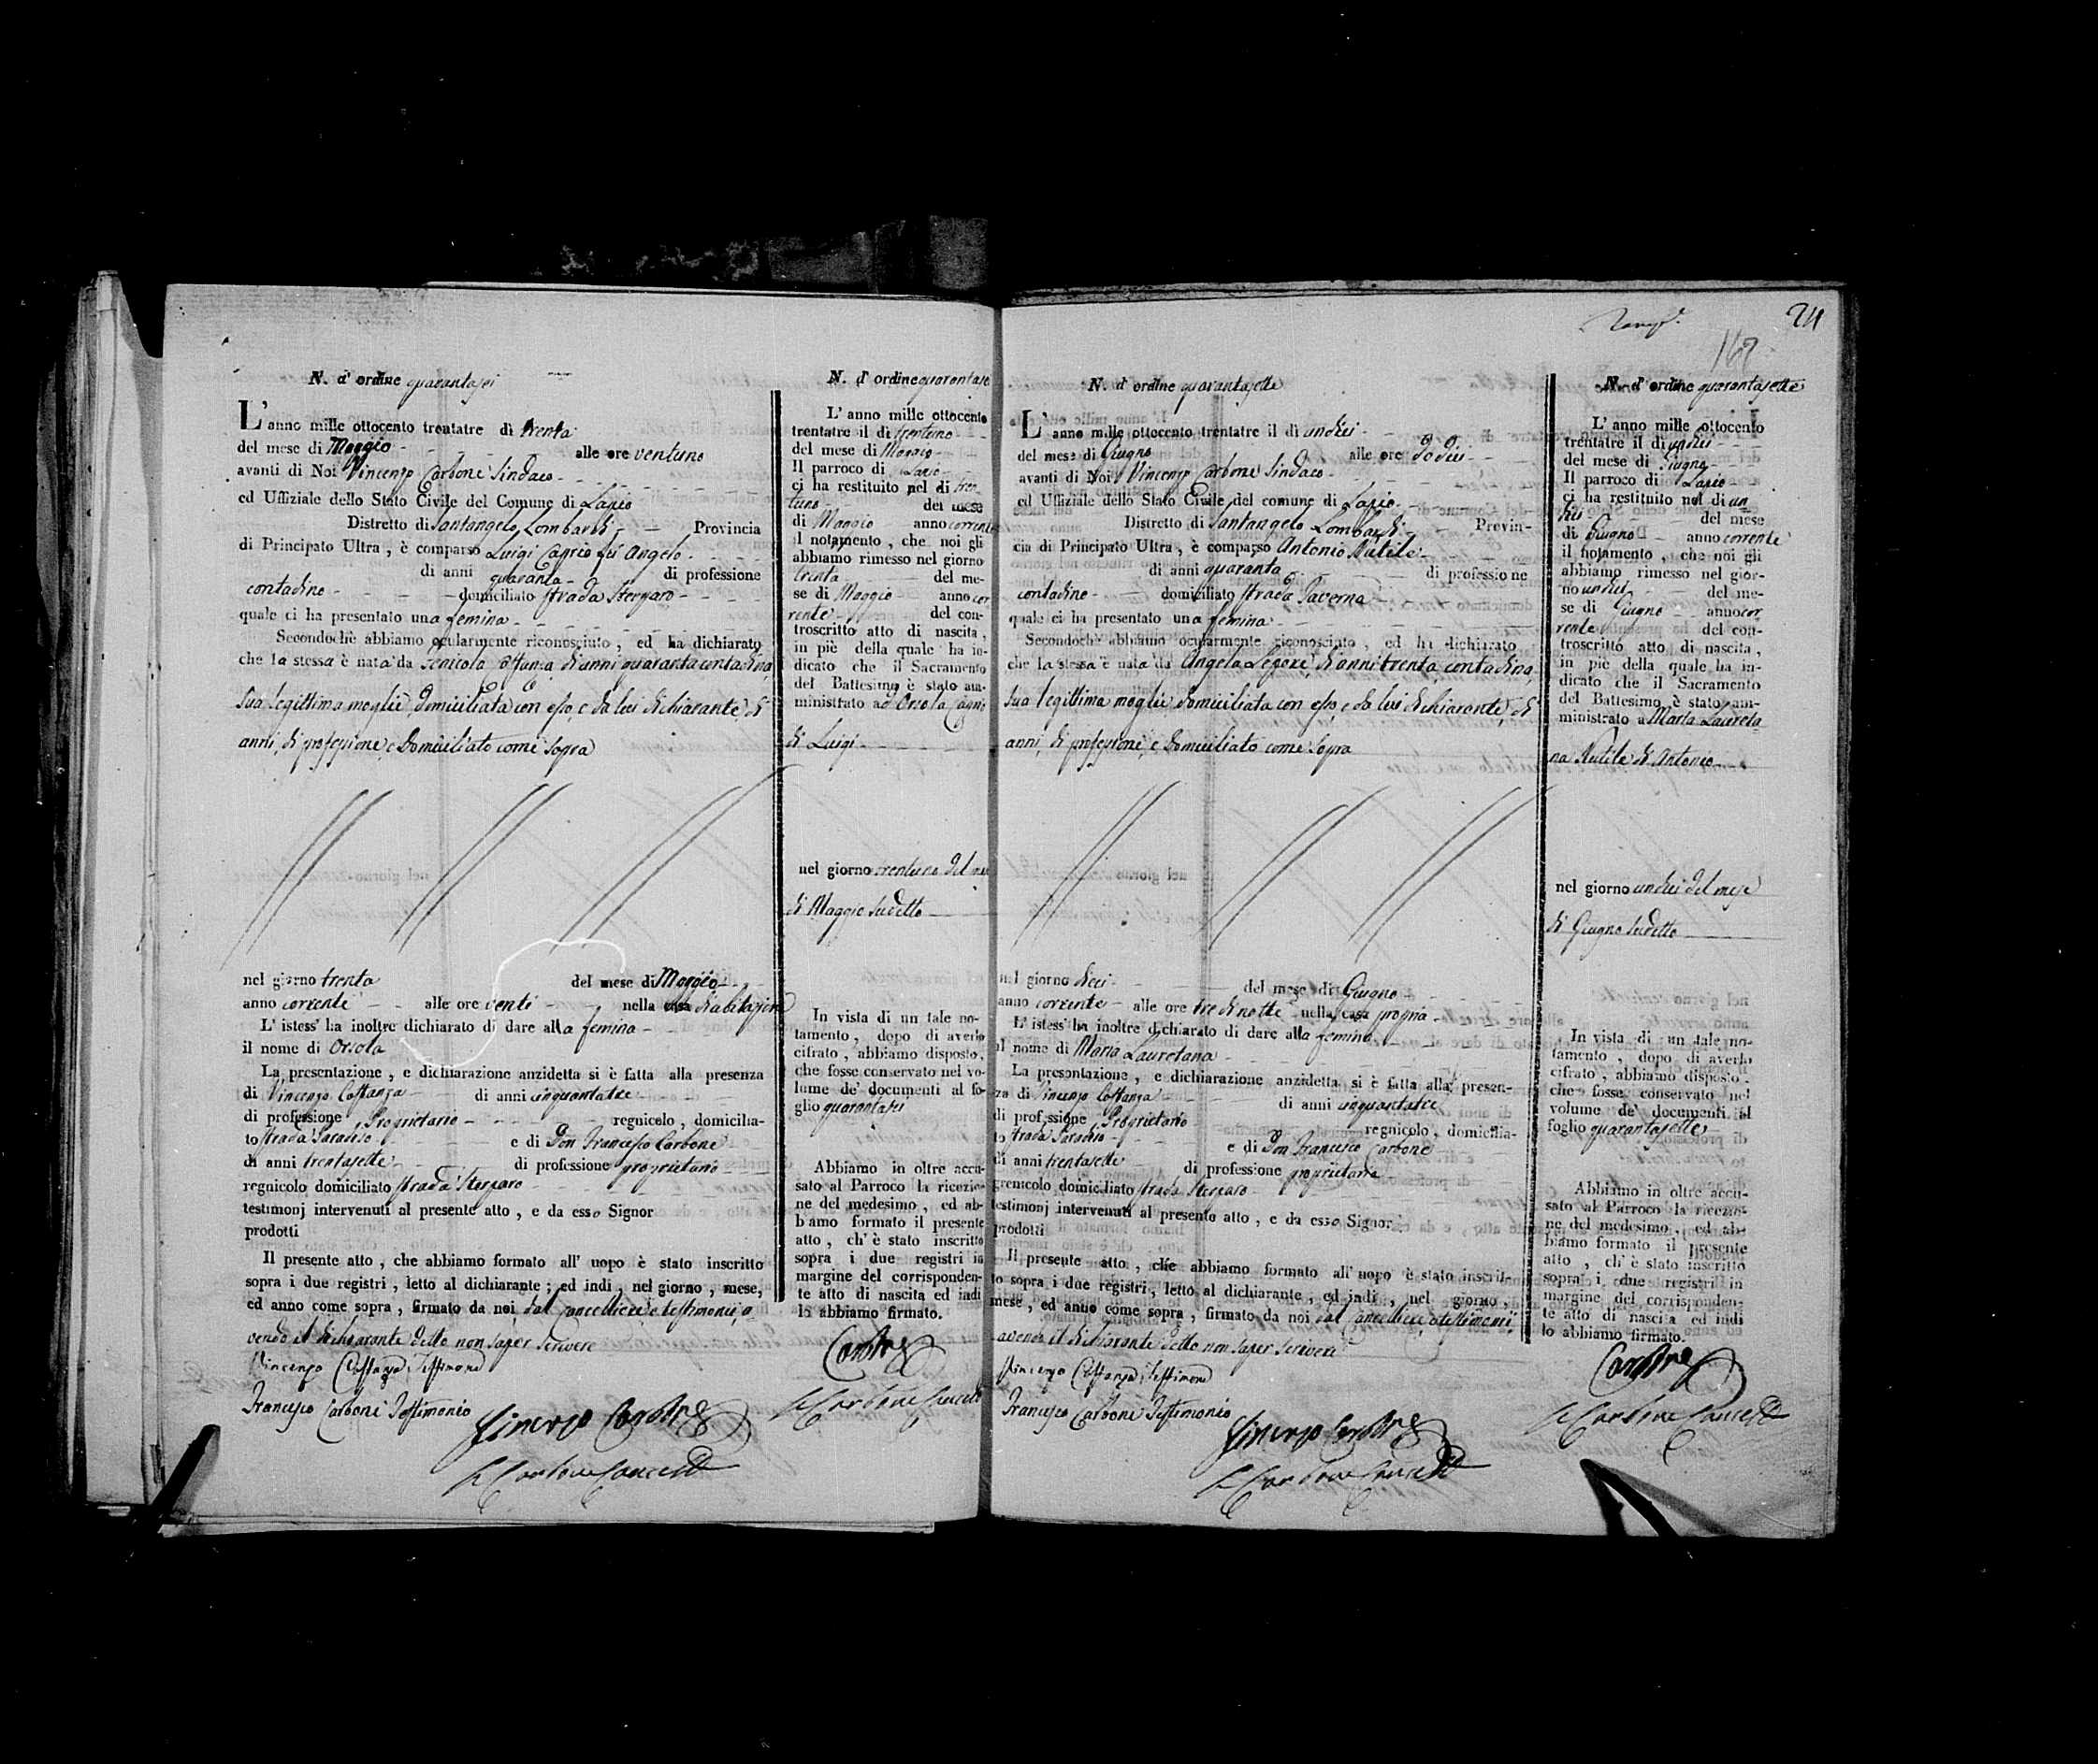 N. d' ordine quarantasei
L' anno mille ottocento trentatre dì trenta
del mese di Maggio alle ore ventuno
avanti di Noi Vincenzo Carbone Sindaco
ed Uffiziale dello Stato Civile del Comune di Lapio
Distretto di Santangelo Lombardi Provincia
di Principato Ultra , è comparso Luigi Caprio fu Angelo
di anni quaranta di professione
contadino domiciliato strada Sterparo
quale ci ha presentato una femina
Secondochè abbiamo ocularmente riconosciuto , ed ha dichiarato
che la stessa è nata da di anni quaranta contadina,
sua legittima moglie, domiciliata con esso, e da lui dichiarante, di
anni, di professione, e domiciliato come sopra
nel giorno trenta del mese di Maggio
anno corrente alle ore venti nella casa d'abitazione
L' istess' ha inoltre dichiarato di dare alla femina
il nome di Orsola
La presentazione , e dichiarazione anzidetta si è fatta alla presenza
di Vincenzo Costanza di anni cinquantatre
di professione Proprietario regnicolo , domicilia-
to strada Saradiso e di Don Francesco Carbone
di anni trentasette di professione proprietario
regnicolo domiciliato strada Sterparo
testimonj intervenuti al presente atto , e da esso Signor
prodotti
Il presente atto , che abbiamo formato all' uopo è stato inscritto
sopra i due registri , letto al dichiarante ; ed indi , nel giorno , mese,
ed anno come sopra , firmato da noi, dal Cancelliere, e testimonii, a-
vendo il dichiarante detto non saper scrivere
Vincenzo Costanza Testimone
Francesco Carbone Testimonio
Vincenzo Carbone
Carbone Cancell
N. d' ordine quarantase
L' anno mille ottocento
trentatre il dì trentuno
del mese di Maggio
Il parroco di Lapio
ci ha restituito nel dì tren
tuno del mese
di Maggio anno corrente
il notamento , che noi gli
abbiamo rimesso nel giorno
trenta del me-
se di Maggio anno cor
rente del con-
troscritto atto di nascita ,
in piè della quale ha in-
dicato che il Sacramento
del Battesimo è stato am-
ministrato ad Orsola Caprio
di Luigi
nel giorno trentuno del me
di Maggio sudetto
In vista di un tale no-
tamento , dopo di averlo
cifrato , abbiamo disposto ,
che fosse conservato nel vo-
lume de' documenti al fo-
glio quarantasei
Abbiamo in oltre accu-
sato al Parroco la ricezio-
ne del medesimo , ed ab-
biamo formato il presente
atto , ch' è stato inscritto
sopra i due registri in
margine del corrisponden-
te atto di nascita ed indi
lo abbiamo firmato.
Carbone
Carbone Cancell
24
167
N. d' ordine quarantasette
L' anno mille ottocento trentatre il dì undici
del mese di Giugno alle ore dodici
avanti di Noi Vincenzo Carbone Sindaco
ed Uffiziale dello Stato Civile del comune di Lapio
Distretto di Santangelo Lombardi Provin-
cia di Principato Ultra , è comparso Antonio Nutile
di anni quaranta di professione
contadino domiciliato strada Taverna
quale ci ha presentato una femina
Secondochè abbiamo ocularmente riconosciuto , ed ha dichiarato
che la stessa è nata da Angela Lepore, di anni trenta, contadina,
sua legittima moglie domiciliata con esso, e da lui dichiarante, di
anni, di professione, e domiciliato come sopra
nel giorno dieci del mese di Giugno
anno corrente alle ore tre di notte nella casa propria
L' istess' ha inoltre dichiarato di dare alla femina
il nome di Maria Lauretana
La presentazione , e dichiarazione anzidetta si è fatta alla presen-
za di Vincenzo Costanza di anni cinquantatre
di professione Proprietario regnicolo , domicilia-
to strada Saradiso e di Don Francesco Carbone
di anni trentasette di professione proprietario
regnicolo domiciliato strada Sterparo
testimonj intervenuti al presente atto , e da esso Signor
prodotti
Il presente atto , che abbiamo formato all' uopo è stato inscrit-
to sopra i due registri, letto al dichiarante , ed indi , nel giorno ,
mese , ed anno come sopra , firmato da noi dal Cancelliere, e testimonii,
avendo il dichiarante detto non saper scrivere
Vincenzo Costanza Testimone
Francesco Carbone Testimonio
Vincenzo Carbone
Carbone Cancell
N. d' ordine quarantasette
L' anno mille ottocento
trentatre il dì undici
del mese di Giugno
Il parroco di Lapio
ci ha restituito nel dì un
dici del mese
di Giugno anno corrente
il notamento , che noi gli
abbiamo rimesso nel gior-
no undici del me-
se di Giugno anno cor
rente del con-
troscritto atto di nascita ,
in piè della quale ha in-
dicato che il Sacramento
del Battesimo è stato am-
ministrato a Maria Laureta
na Nutile di Antonio
nel giorno undici del mese
di Giugno sudetto
In vista di un tale no-
tamento , dopo di averlo
cifrato , abbiamo disposto .
che fosse conservato nel
volume de' documenti al
foglio quarantasette
Abbiamo in oltre accu-
sato al Parroco la ricezio-
ne del medesimo , ed ab-
biamo formato il presente
atto , ch' è stato inscritto
sopra i due registri in
margine del corrisponden-
te atto di nascita ed indi
lo abbiamo firmato.
Carbone
Carbone Cancell